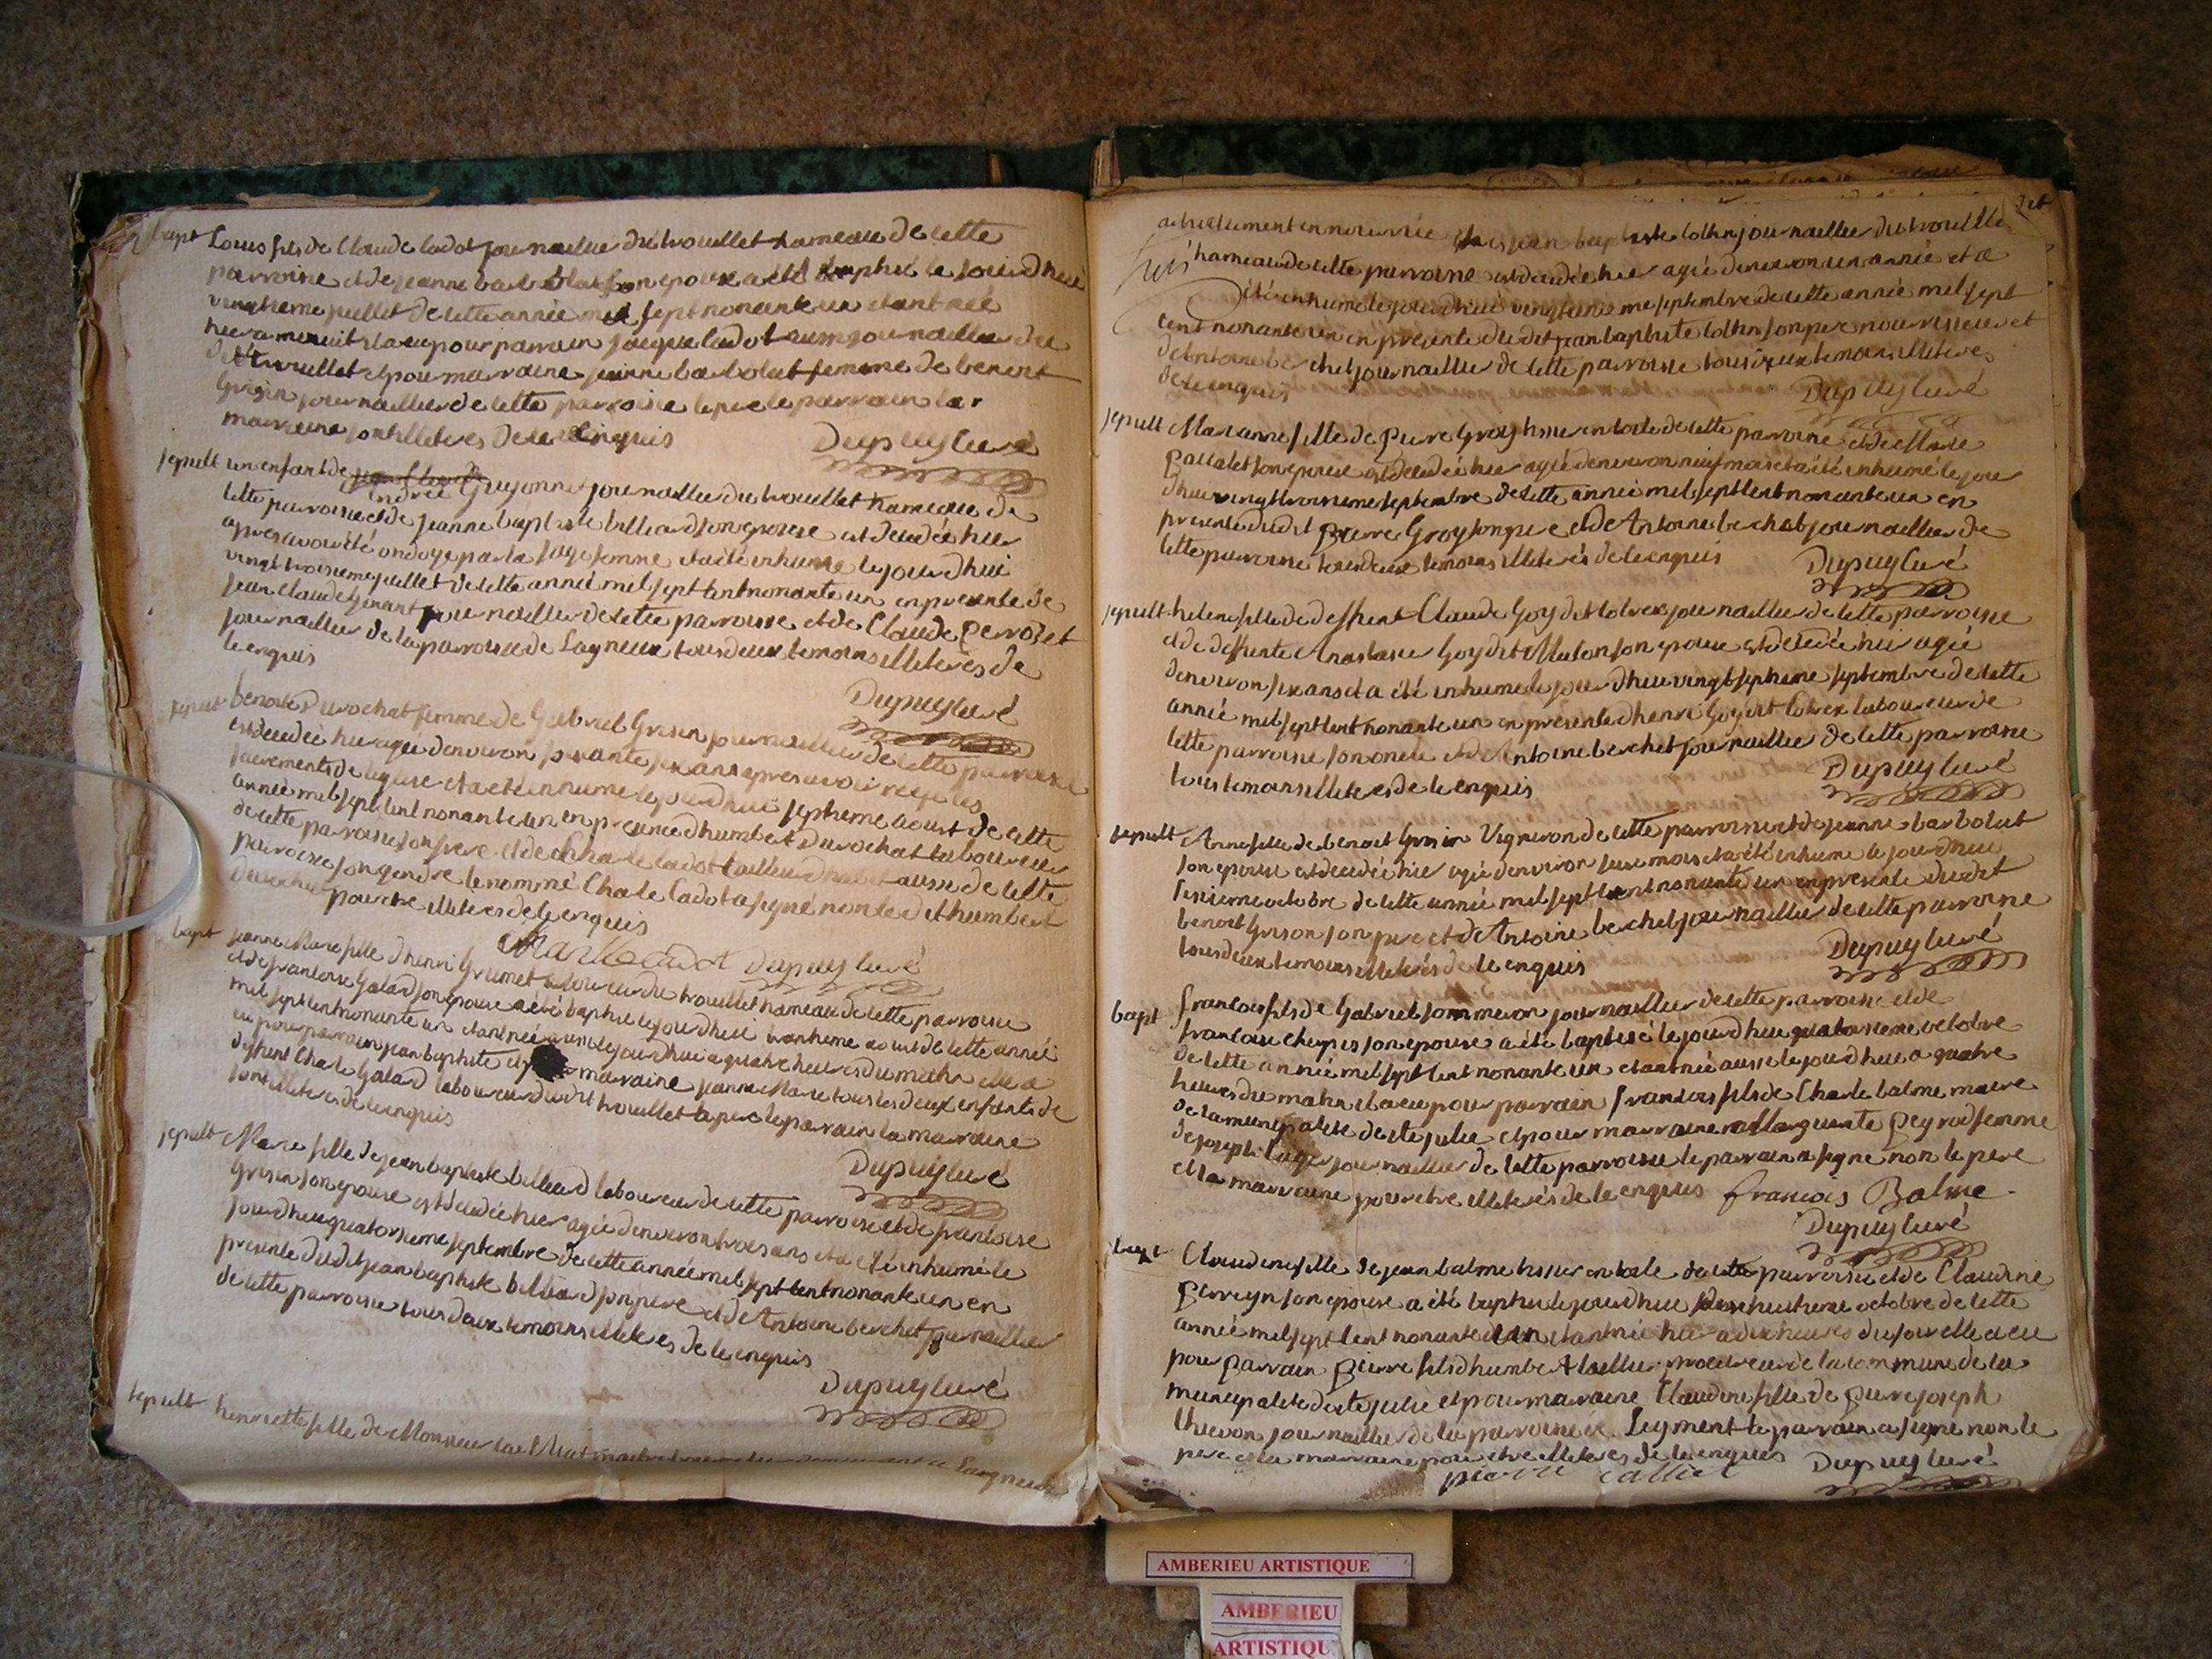 bapt Louis fils de Claude Cadot journaillier du trouillet hameau de cette
parroisse et de jeanne barbolat son epouse a été baptisé le jourdhui
vingtieme juillet de cette année mil sept nonante un etant née
hier a menuit il a eu pour parrain jacque Cadot aussi journaillier du
dit trouillet et pour marraine jeanne barbolat femme de benoit
Grisin journaillier de cette parroisse le pere le parrain la
marraine sont illiteres de ce enquis Dupuy curé
sepult un enfant de
andree Grujonnet journaillier du trouillet hameau de
cette parroisse et de jeanne baptiste billiard son epouse est decedée hier
apres avoir été ondoye par la sage femme et a été inhumé le jourdhui
vingt troisieme juillet de cette année mil sept cent nonante un en presence de
jean Claude journaillier de cette parroisse et de Claude Perrozet
journaillier de la parroisse de Lagneux tous deux temoins illiteres de
ce enquis
Dupuy curé
sepult benoite Durochat femme de Gabriel Grisin journaillier de cette parroisse
est decedée hier agée denviron soixante six ans apres avoir reçu les
sacrements de leglise et a été inhume le jourdhui septieme aoust de cette
année mil sept cent nonante un en presence dhumbert Durochat laboureur
de cette parroisse son frere et de Charle Cadot tailleur dhabit aussi de cette
parroisse son gendre le nommé Charle Cadot a signé non le dit humbert
Durochat pour etre illiteres de ce enquis
Charle Cadot Dupuy curé
bapt jeanne Marie fille dhenri Grumet laboureur du trouillet hameau de cette parroisse
et de francoise Galard son epouse a été baptise le jourdhui aoust de cette année
mil sept cent nonante un etant née aussi le jourdhui a quatre heures du matin elle a
eu pour parrain jean baptiste et marraine jeanne Marie tous les deux enfants de
deffunt Charle Galard laboureur du dit trouillet le pere le parrain la marraine
sont illiteres de ce enquis
Dupuy curé
sepult Marie fille de jean baptiste billiard laboureur de cette parroisse et de francoise
Grisin son epouse est decedée hier agée denviron trois ans et a été inhumé le
jourdhui quatorsieme septembre de cette année mil sept cent nonante un en
presence du dit jean baptiste billiard son pere et de Antoine berchet journaillier
de cette parroisse tous deux temoins illiteres de ce enquis
Dupuy curé
sepult henriette fille de Monsieur
actuellement en nourrice chez jean baptiste Cottin journaillier du trouillet
hameau de cette parroisse est decedée hier agée denviron un année et a
été inhumé le jourdhui septembre de cette année mil sept
cent nonante un en presence du dit jean baptiste Cottin son pere nourrissieur et
de Antoine berchet journaillier de cette parroisse tous deux temoins illiteres
de ce enquis Dupuy curé
sepult Marianne fille de Pierre Groy tissier en toile de cette parroisse et de Marie
son epouse est decedée hier agée denviron neuf mois et a été inhumé le jour
dhui vingt troisieme septembre de cette année mil sept cent nonante un en
presence du dit Pierre Groy son pere et de Antoine berchet journaillier de
cette parroisse tous deux temoins illiterés de ce enquis Dupuy curé
sepult helene fille de deffunt Claude Goy dit Colrex journaillier de cette parroisse
et de deffunte Anastasie Goy dit Mulon son epouse est decedée hier agée
denviron six ans et a été inhumé le jourdhui vingt septieme septembre de cette
année mil sept cent nonante un en presence dhenri Goy dit Colrex laboureur de
cette parroisse son oncle et de Antoine berchet journaillier de cette parroisse
tous temoins illiteres de ce enquis Dupuy curé
sepult Anne fille de benoit Grisin Vigneron de cette parroisse et de jeanne barbolat
son epouse est decedée hier agée denviron seise mois et a été inhumé le jourdhui
octobre de cette année mil sept cent nonante un en presence du dit
benoit Grison son pere et de Antoine berchet journaillier de cette parroisse
tous deux temoins illiterés de ce enquis Dupuy curé
bapt francois fils de Gabriel Sommeron journaillier de cette parroisse et de
francoise son epouse a été baptisé le jourdhui quatorsieme octobre
de cette année mil sept cent nonante un etant née aussi le jourdhui a quatre
heures du matin il a eu pour parrain francois fils de Charle balme maire
de la municipalité de ste julie et pour marraine Marguerite Peyrod femme
de joseph journaillier de cette parroisse le parrain a signé non le pere
et la marraine pour etre illiterés de ce enquis francois Balme
Dupuy curé
bapt Claudine fille de jean balme tissier en toile de cette parroisse et de Claudine
Perreyn son epouse a été baptise le jourdhui octobre de cette
année mil sept cent nonante un etant née hier a dix heures du soir elle a eu
pour parrain Pierre fils dhumbert Calliet procureur de la commune de la
municipalité de ste julie et pour marraine Claudine fille de Pierre joseph
journaillier de la parroisse de Leyment le parrain a signé non le
pere et la marraine pour etre illiteres de ce enquis Dupuy curé
pierre calliet
AMBERIEU ARTISTIQUE
AMBERIEU
ARTISTIQU